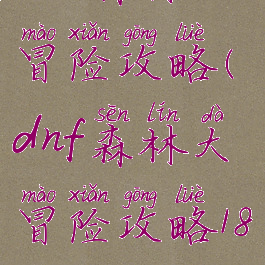 mào xiǎn gōng lüè
冒险攻略(
sēn lín dà
dnf森林大
mào xiǎn gōng lüè
冒险攻略18